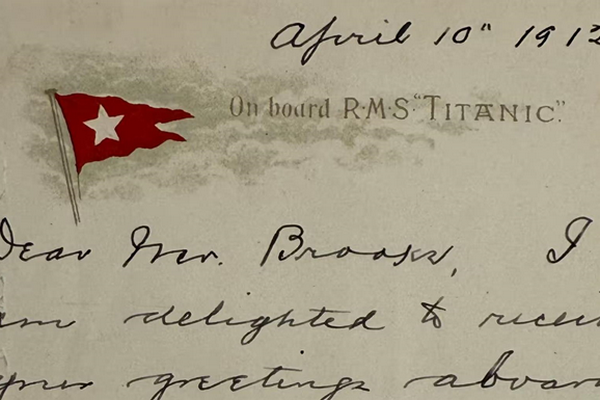 April 10" 191
On board R·M·S· "TITANIC."
Dear Mr. Brooks, I
am delighted to recei
your greetings aboar